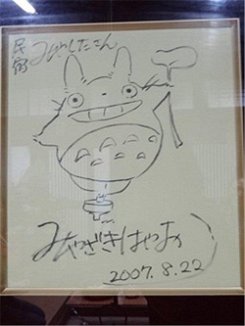 民宿 みやしたさん
みやざきはやお
2007.8.22